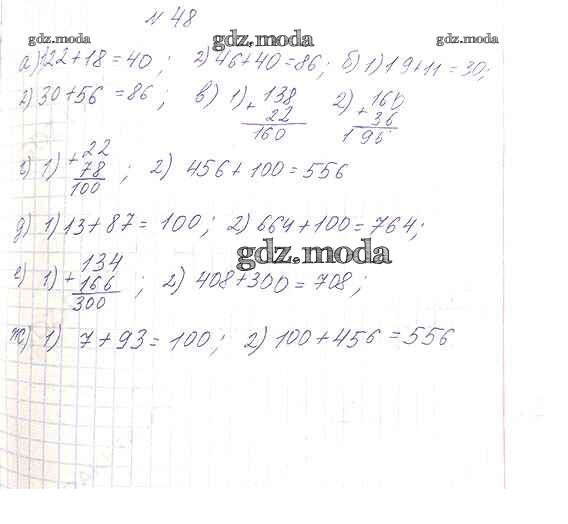 № 48
gdz.moda gdz.moda gdz.moda
а) 1) 22+18=40; 2) 46+40=86; б) 1) 19+11=30;
2) 30+56=86; в) 1) + 138 2) + 160
22 36
160 196
г) 1) + 22 ; 2) 456+100=556
78
100
д) 1) 13+87=100; 2) 664+100=764;
gdz.moda
е) 1) + 134 ; 2) 408+300=708;
166
300
ж) 1) 7+93=100; 2) 100+456=556